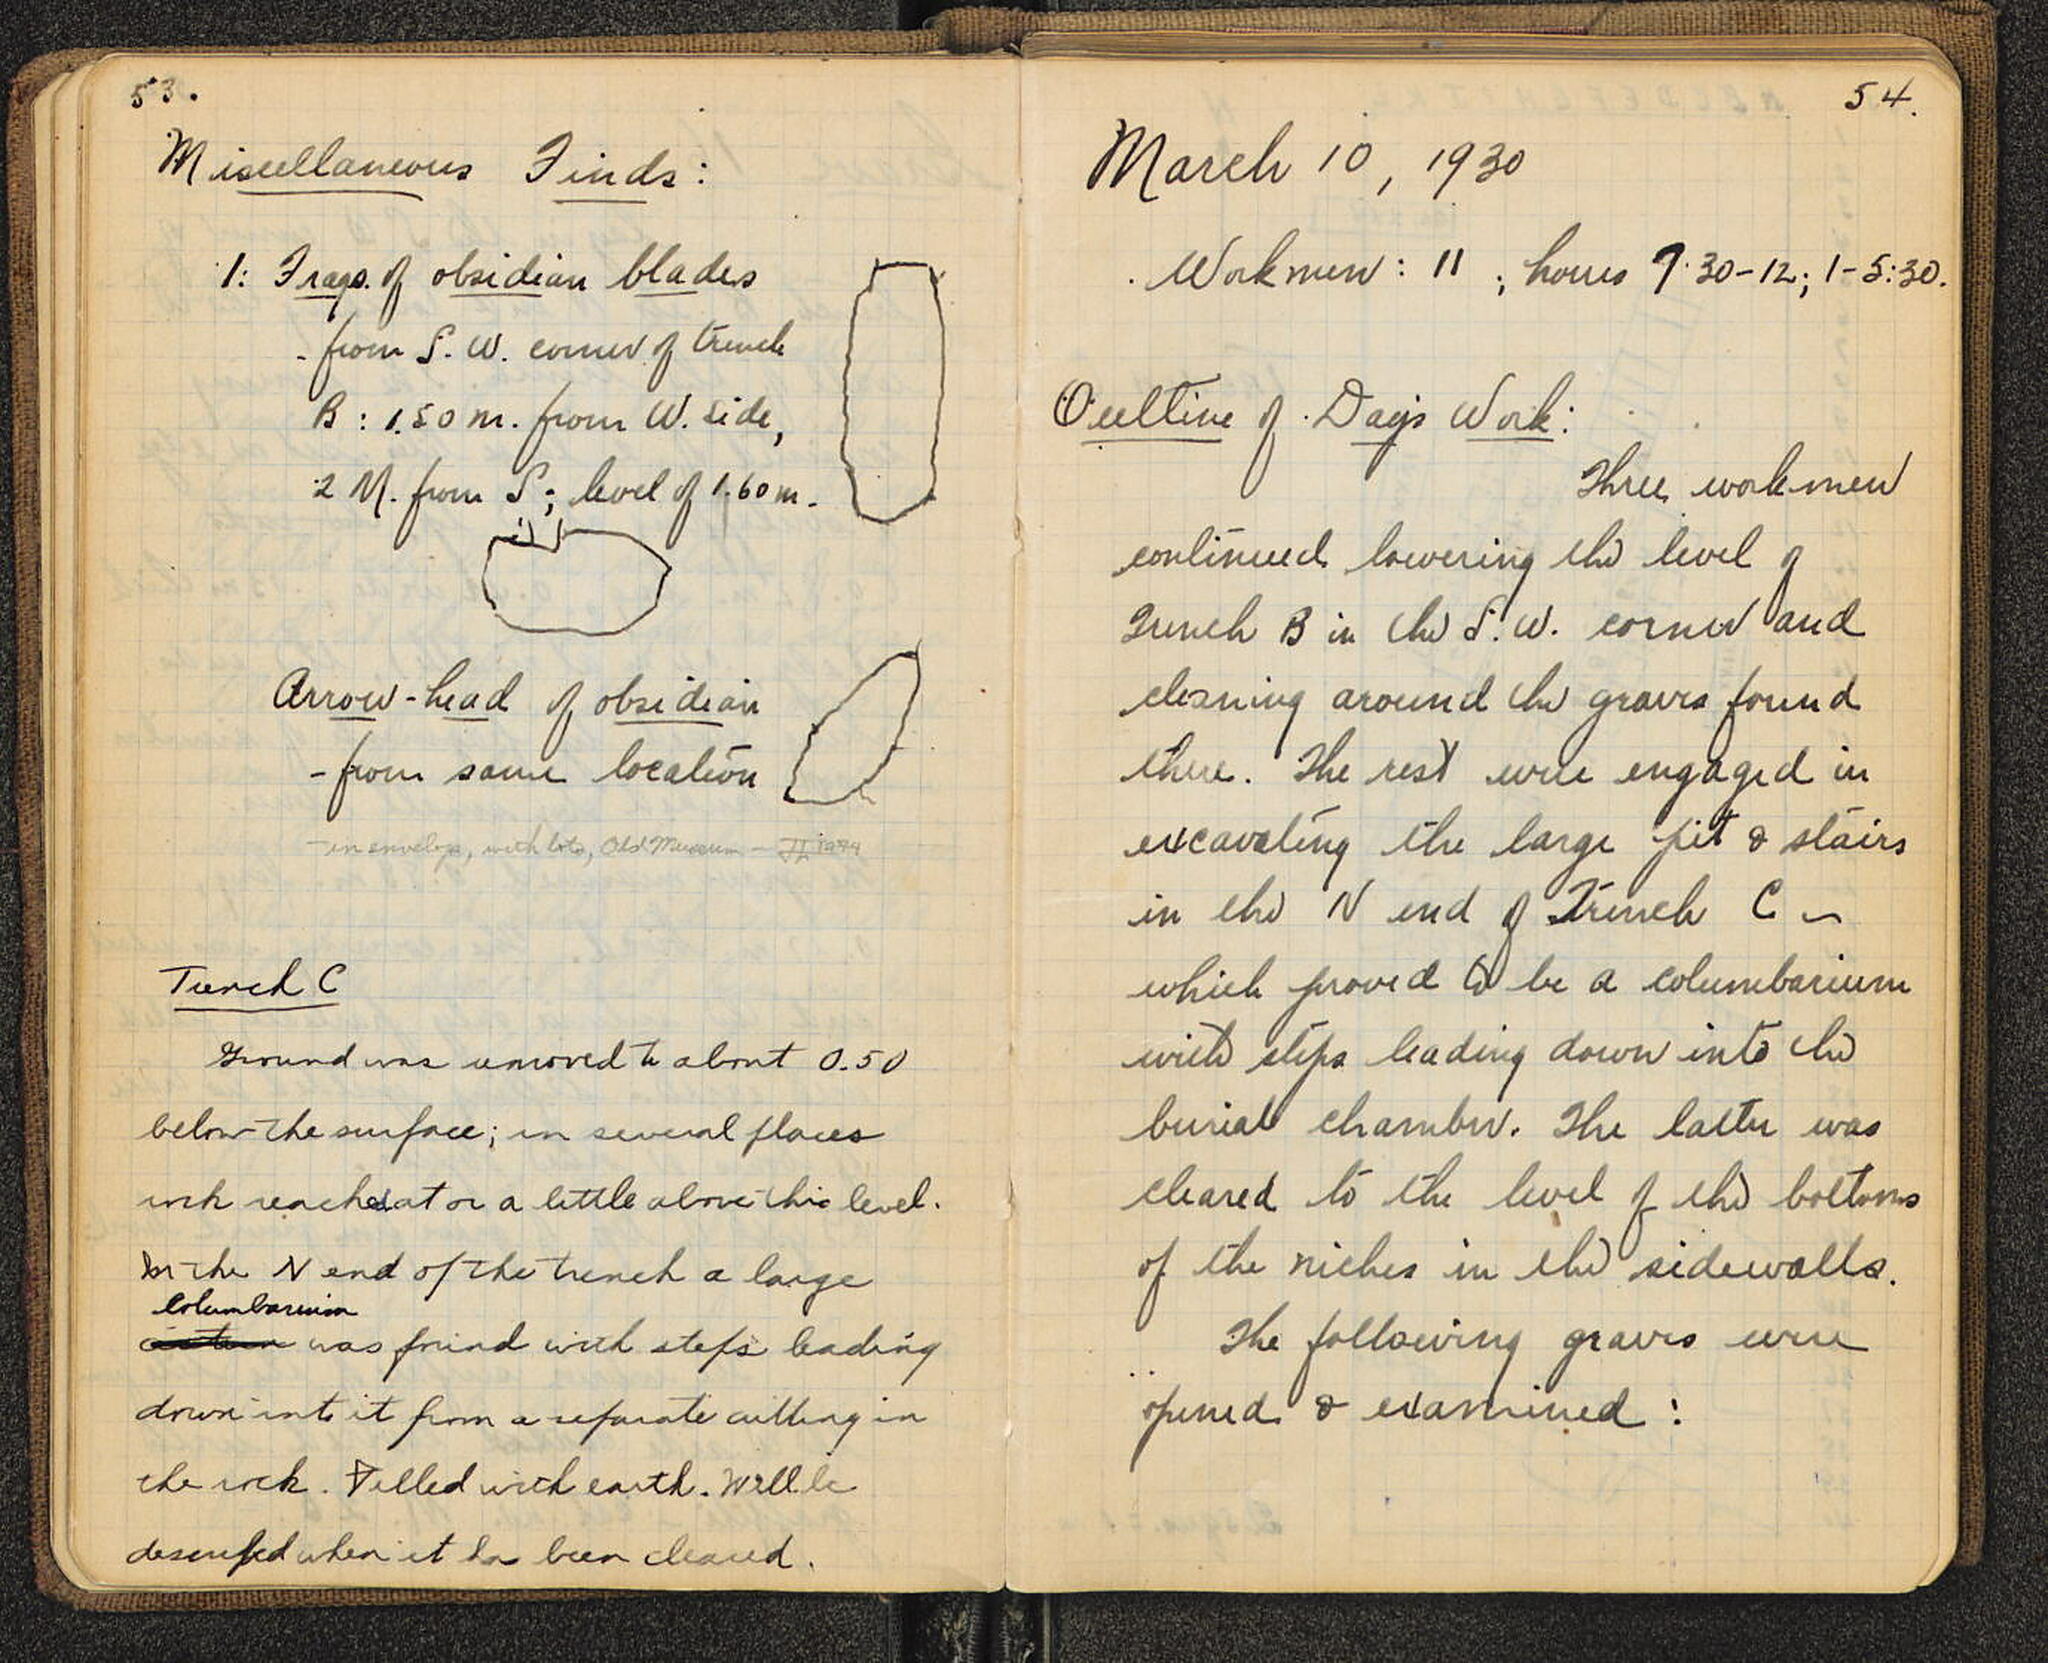 53.
Miscellaneous Finds:
1: Frags. of obsidian blades
- from S. W. corner of trench
B: 1.50 m. from W. side,
2 M. from S; level of 1.60 m.
Arrow-head of obsidian
- from same location
- in envelope, with lots, Old Museum -
Trench C
Ground was removed to about 0.50
below the surface; in several places
rock reached at or a little above this level.
In the N end of the trench a large
columbarium
was found with steps leading
down into it from a separate cutting in
the rock. Filled with earth. Will be
described when it has been cleared.
54.
March 10, 1930
Workmen: 11 ; hours 7:30-12; 1-5:30.
Outline of Day's Work:
Three workmen
continued lowering the level of
Trench B in the S. W. corner and
cleaning around the graves found
there. The rest were engaged in
excavating the large pit & stairs
in the N end of Trench C -
which proved to be a columbarium
with steps leading down into the
burial chamber. The latter was
cleared to the level of the bottoms
of the niches in the sidewalls.
The following graves were
opened & examined :